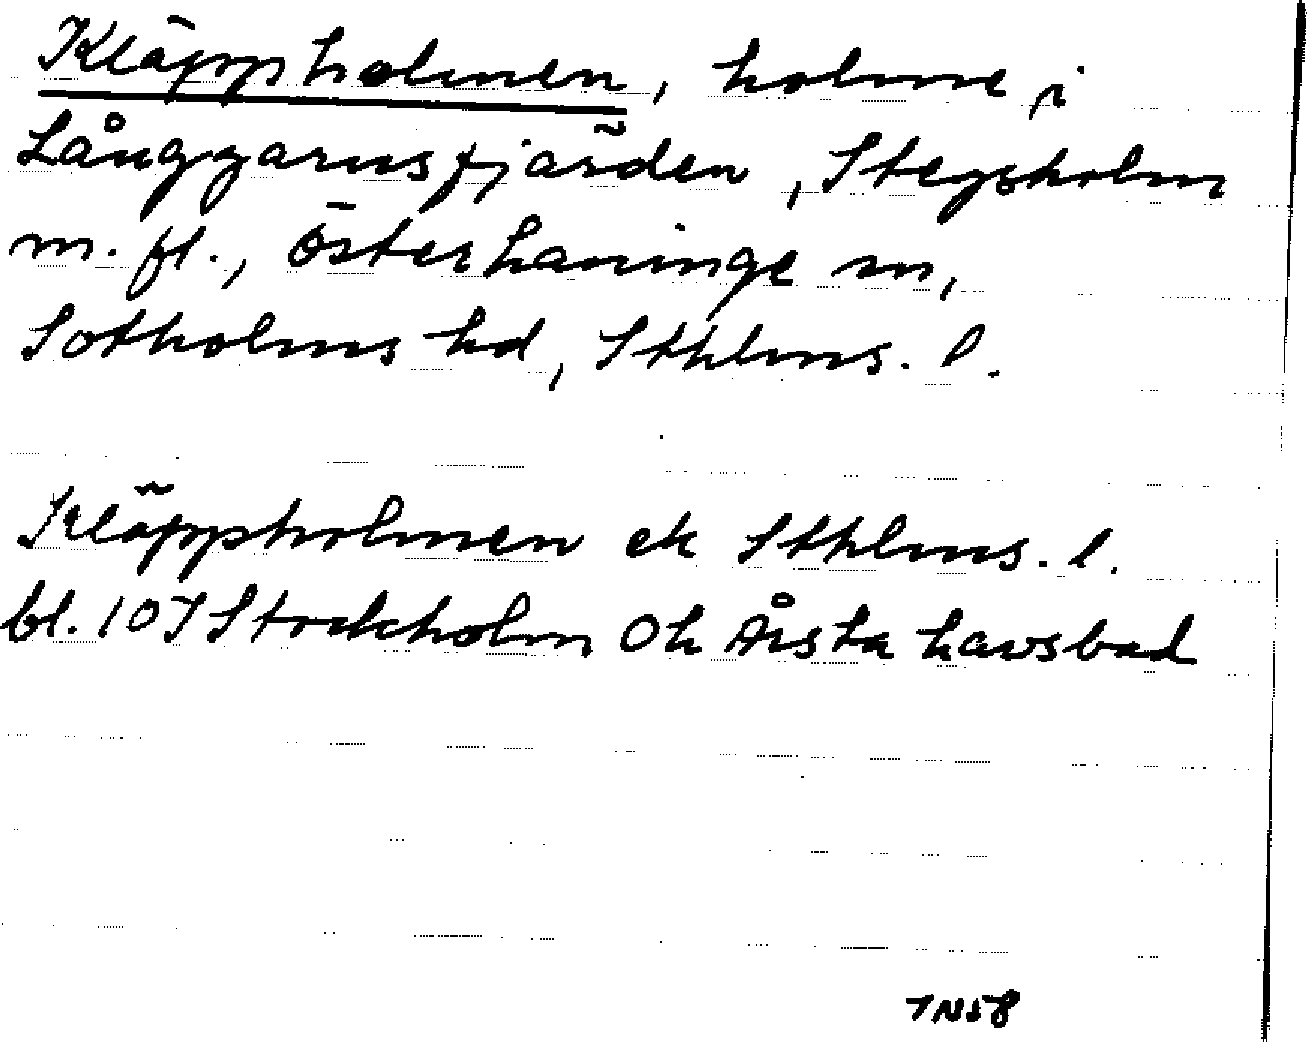 Kläppholmen, holme i
Långgarnsfjärden, Stegsholm
m.fl., Österhaninge sn,
Sotholms hd, Sthlms. l.
Kläppholmen ek Sthlms. l.
bl. 10I Stockholm Oh Årsta havsbad